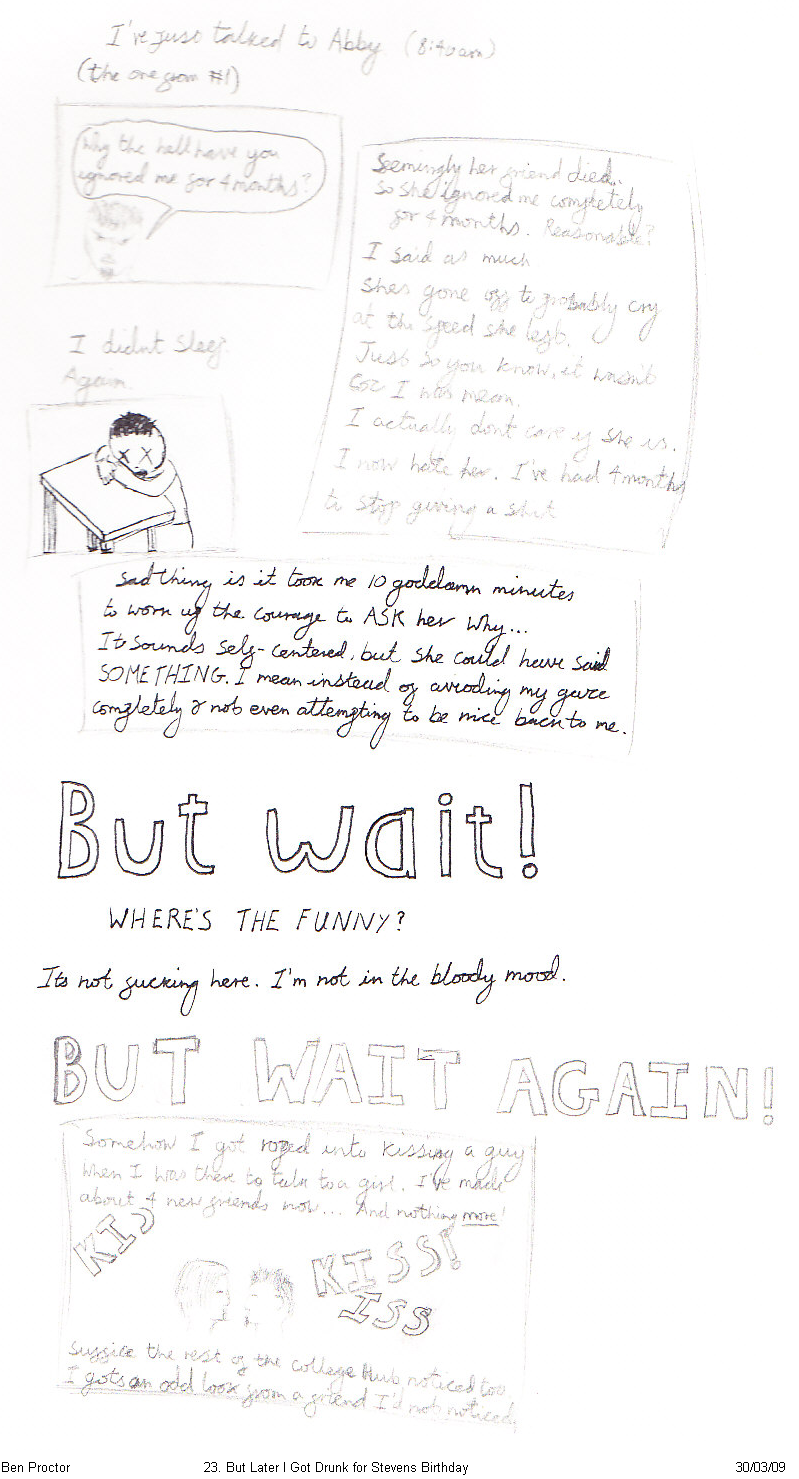 I've just talked to Abby (8:40am)
(the one from #1)
Why the hell have you
ignored me for 4 months?
Seemingly her friend died.
So she ignored me completely
for 4 months. Reasonable?
I said as much
Shes gone off to probably cry
at the speed she left.
Just so you know, it wasn't
Coz I was mean.
I actually dont care if she is.
I now hate her. I've had 4 months
to stop giving a shit
I didnt Sleep.
Again.
Sad thing is it took me 10 goddamn minutes
to work up the courage to ASK her why...
It sounds self-centered, but she could have said
SOMETHING. I mean instead of avoiding my gaze
completely & not even attempting to be nice back to me.
But wait!
WHERE'S THE FUNNY?
Its not fucking here. I'm not in the bloody mood.
BUT WAIT AGAIN!
Somehow I got roped into kissing a guy
when I was there to talk to a girl. I've made
about 4 new friends now... And nothing more!
KIS
KISS!
ISS
Suffice the rest of the college Hub noticed too
I gots an odd look from a friend I'd not noticed
Ben Proctor 23. But Later I Got Drunk for Stevens Birthday 30/03/09